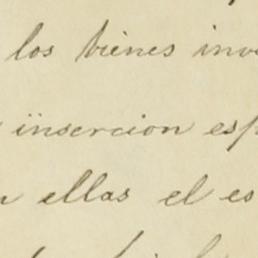 los bienes inv
insercion esp
n ellas el es